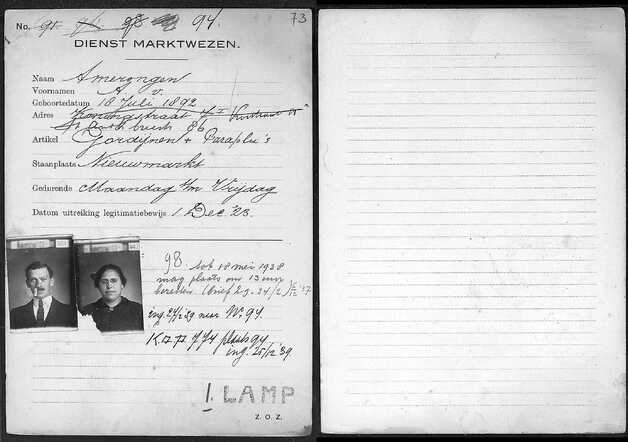 No. 91 98 94. 73
DIENST MARKTWEZEN.
Naam Amerongen
Voornamen A. v.
Geboortedatum 18 Juli 1892
Adres
86
Artikel Gordijnen + Paraplu's
Staanplaats Nieuwmarkt
Gedurende Maandag t/m Vrijdag
Datum uitreiking legitimatiebewijs 1 Dec. '23.
98. tot 18 mei 1938
mag plaats om 13 uur
bezetten (brief
ing. 27/2 39 naar No. 94.
plaats 94
ing. 25/12 '39
1. LAMP
Z. O. Z.